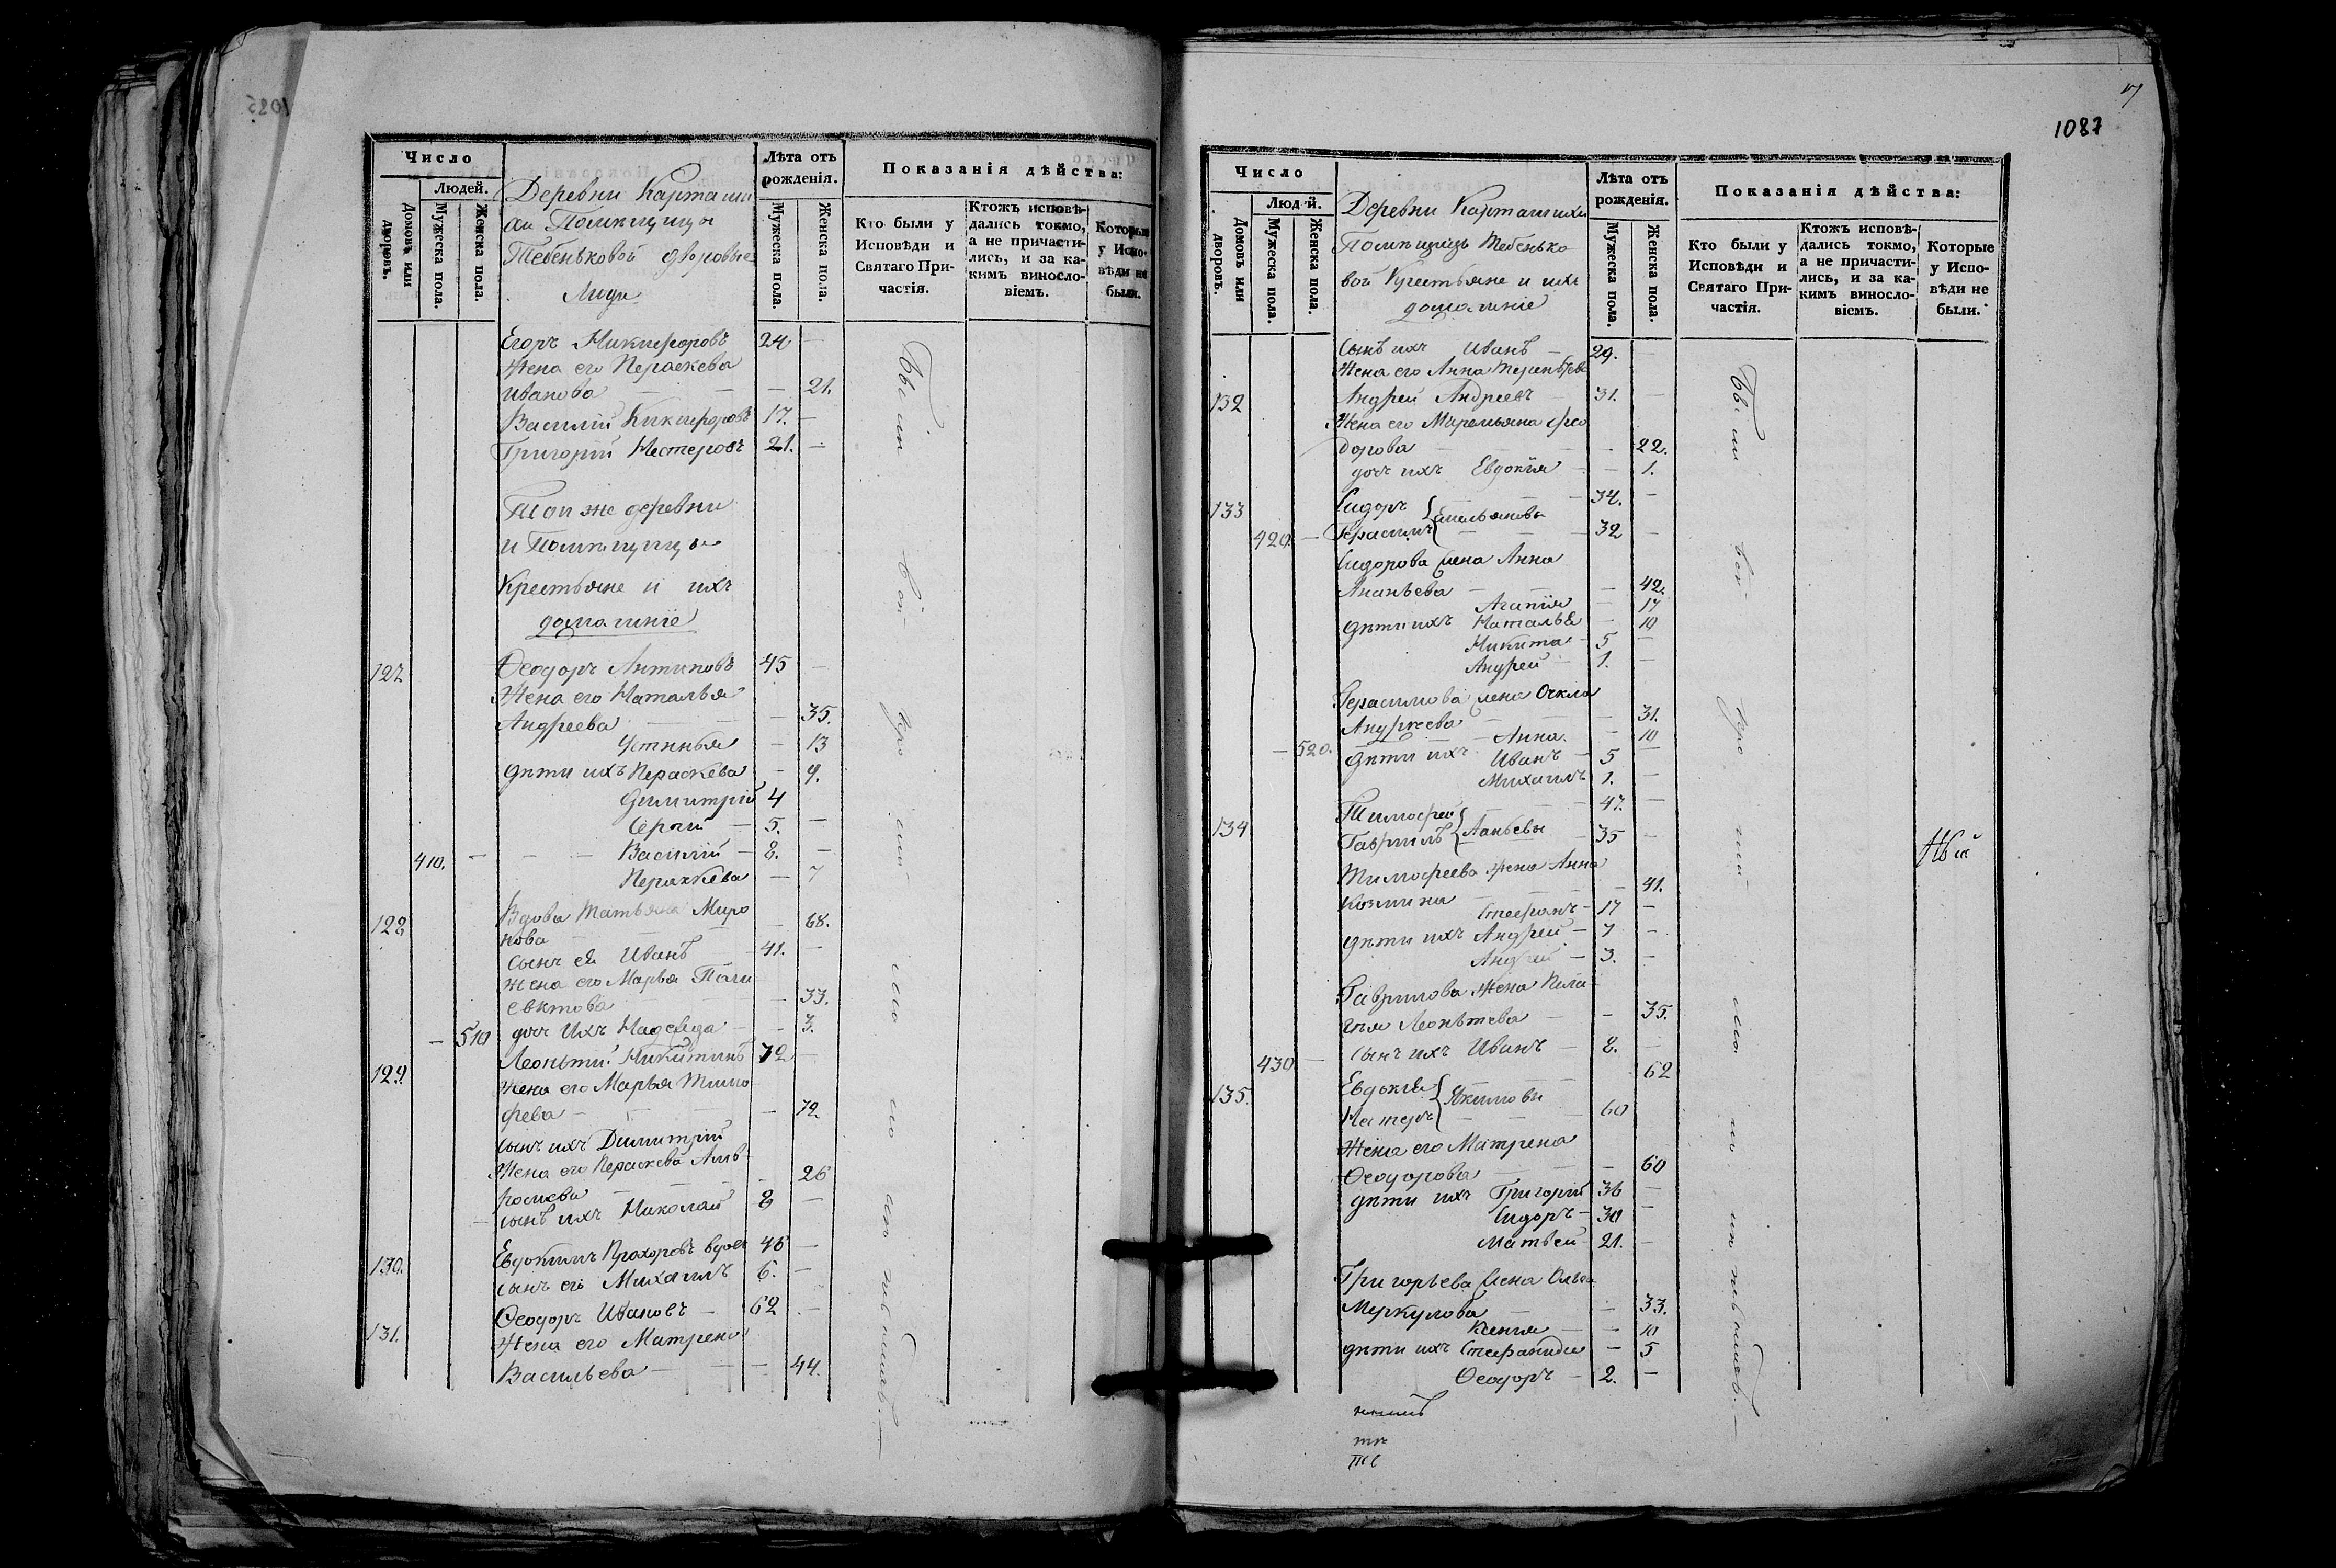 Число
Людей.
Домовъ или дворовъ.
Мужеска пола.
Женска пола.
Деревни Карташи
хи Помѣщицы
Тебеньковой дворовые
Люди
Лѣта отъ рожденія.
Мужеска пола.
Женска пола.
Показанія дѣйства:
Кто были у Исповѣди и Святаго Причастія.
Ктожъ исповѣдались токмо, а не причастились, и за какимъ винословіемъ.
Которые у Исповѣди не были.
Егоръ Никифоровъ 24 —
Жена его Параскева
Иванова — — 21.
Василій Никифоровъ 17. —
Григорій Нестеровъ 21. —
Той же деревни
и Помѣщицы
Крестьяне и ихъ
домашніе
127 Ѳеодоръ Антиповъ 45 —
Жена его Наталья
Андреева — — 35.
Устинья — 13
дѣти ихъ Параскева — 9.
Димитрій 4
Сергій — 5. —
410. — — — Василій — 8. —
Параскева — 7
128 Вдова Татьяна Миро
нова — — 68.
сынъ ея Иванъ — 41. —
жена его Марья Поли
евктова — 33.
— 510 дочь ихъ Надежда — — 3.
129. Леонтій Никитинъ 72 —
Жена его Марья Тимо
феева — — — 72.
сынъ ихъ Димитрій
Жена его Параскева Амв
росиева — — — 26
— сынъ ихъ Николай 8 —
130. Евдокимъ Прохоровъ вдовъ 46 —
сынъ его Михаилъ 6. —
131. Ѳеодоръ Ивановъ — 62 —
Жена его Матрена
Васильева — — — 44.
1087
Число
Людей.
Домовъ или дворовъ.
Мужеска пола.
Женска пола.
Деревни Карташихи
Помѣщицы Тебенько
вой Крестьяне и ихъ
домашніе
Лѣта отъ рожденія.
Мужеска пола.
Женска пола.
Показанія дѣйства:
Кто были у Исповѣди и Святаго Причастія.
Ктожъ исповѣдались токмо, а не причастились, и за какимъ винословіемъ.
Которые у Исповѣди не были.
Сынъ ихъ Иванъ — 29. —
Жена его Анна
132 Андрей Андреевъ 31. —
Жена его Ѳео
дорова — — 22.
дочь ихъ Евдокія — — 1.
133 Сидоръ — — 34. —
420. — Герасимъ { Емельяновы — 32 —
Сидорова жена Анна
Ананьева — — 42.
Агапія — 17
дѣти ихъ Наталья — 10
Никита — 5 —
Андрей — 1. —
Герасимова жена Ѳекла
Андреева — — 31.
— 520. — Анна — 10
дѣти ихъ Иванъ — 5 —
Михаилъ 1. —
134 Тимофей — 47. —
Гавріилъ { — 35 —
Тимофеева жена Анна
Козмина — — 41.
Стефанъ — 17 —
дѣти ихъ Андрей — 7 —
Андрей — 3. —
Гаврилова жена Пела
гея Леонтьева — — 35.
430 — сынъ ихъ Иванъ — 8. —
62
135. Евдокія
Нестеръ { Якимовы 60
Жена его Матрена
Ѳеодорова — — 60
дѣти ихъ Григорій 36 —
Сидоръ — 30 —
Матвей — 21. —
Григорьева жена Ольга
Меркулова — — 33.
Ксения — — 10
дѣти ихъ Стефанида — 5
Ѳеодоръ — 2. —